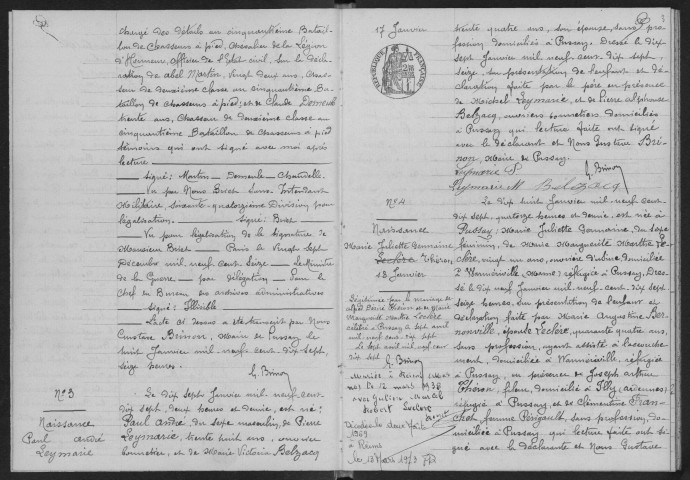 chargé des détails au cinquantième Batail-
lon de Chasseurs à pied, Chevalier de la Légion
d'Honneur, Officier de l'Etat civil, sur la décla-
ration de Abel Martin, vingt deux ans, Chas-
seur de deuxième classe au cinquantième Ba-
taillon de chasseurs à pied; et de Claude
trente ans, Chasseur de deuxième classe au
cinquantième Bataillon de Chasseurs à pied
témoins qui ont signé avec moi après
lecture
signé: Martin
Vu par Nous Sous-Intendant
Militaire, soixante-quatorzième Division pour
légalisation. Signé:
Vu pour légalisation de la signature de
Monsieur Paris le vingt sept
Décembre mil neuf cent seize. Le Ministre
de la Guerre, par délégation, pour le
Chef du Bureau des archives administratives
Signé: Illisible
L'acte ci dessus a été transcrit par Nous
Gustave Brinon, Maire de Pussay, le
huit Janvier mil neuf cent dix sept,
seize heures.
G. Brinon
No 3
Naissance
Paul André
Leymarie
Le dix sept Janvier mil neuf cent
dix sept, deux heures et demie, est né:
Paul André, du sexe masculin, de Pierre
Leymarie, trente huit ans, ouvrier
bonnetier, et de Marie Victoria Belzacq
3
17 Janvier
RÉPUBLIQUE FRANÇAISE
trente quatre ans, son épouse, sans pro-
fession, domiciliés à Pussay. Dressé le dix
sept Janvier mil neuf cent dix sept,
seize, sur présentation de l'enfant et dé-
claration faite par le père en présence
de Michel Leymarie, et de Pierre Alphonse
Belzacq, ouvriers bonnetiers, domiciliés
à Pussay qui lecture faite ont signé
avec le déclarant et Nous Gustave Bri-
non, Maire de Pussay.
Leymarie P
G. Brinon
Leymarie M Belzacq
No 4
Naissance
Marie Juliette Germaine
Leclère Théron
18 Janvier
Le dix huit Janvier mil neuf cent
dix sept, quatorze heures et demie, est née à
Pussay: Marie Juliette Germaine, du sexe
féminin, de Marie Marguerite Marthe Le-
clère, vingt un ans, ouvrière d'usine, domiciliée
à Warmériville (Marne) réfugiée à Pussay. Dres-
sé le dix sept Janvier mil neuf cent dix sept
seize heures, sur présentation de l'enfant et
déclaration faite par Marie Augustine Ber-
nonville, épouse Leclère, quarante quatre ans,
sans profession, ayant assisté à l'accouche-
ment, domiciliée à Warmériville, réfugiée
à Pussay, en présence de Joseph Arthur
Théron, fileur, domicilié à Illy (Ardennes)
réfugié à Pussay et de Clémentine
femme Périgault, sans profession, do-
miciliée à Pussay, qui lecture faite ont si-
gné avec la déclarante et Nous Gustave
Légitimée par le mariage de
Théron et de Marie
Marguerite Marthe Leclère
célébré à Pussay le sept avril
mil neuf cent dix sept.
Le sept avril mil neuf cent
dix sept
G. Brinon
le 12 mars 1938
avec Julien Marcel
Robert Leclerc
1969
à Reims
Le 12 Mars 1973